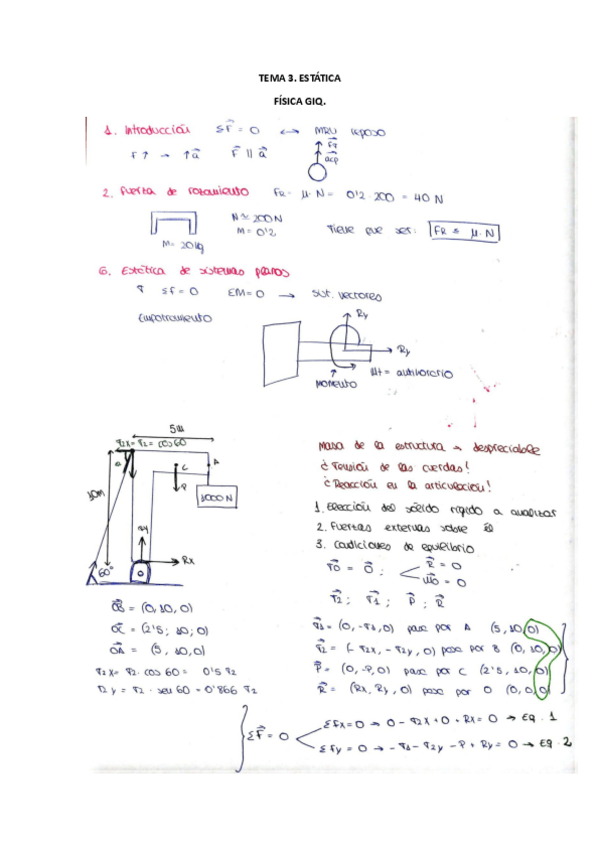 TEMA 3. ESTÁTICA
FÍSICA GIQ.
1. Introducción ΣF⃗ = 0 ↔ MRU reposo
F ↑ → ↑ a⃗ F⃗ || a⃗
acp
2. Fuerza de rozamiento FR = μ · N = 0'2 · 200 = 40 N
N ≈ 200 N
M = 0'2
M = 20 kg
Tiene que ser: FR ≤ μ · N
6. Estática de sistemas planos
ΣF = 0 ΣM = 0 → sist. vectores
Empotramiento
Ry
Ry
Mt = antihorario
MOMENTO
5m
T2x = T2 = cos 60
C
A
P
1000 N
10m
Rx
O
60°
Masa de la estructura → despreciable
¿Tensión de las cuerdas?
¿Reacción en la articulación?
1. Elección del sólido rígido a analizar
2. Fuerzas externas sobre él
3. Condiciones de equilibrio
T⃗O = O⃗ ; R⃗ = 0
M⃗O = 0
T⃗2 ; T⃗1 ; P⃗ ; R⃗
OB⃗ = (0, 10, 0)
OC⃗ = (2'5; 10; 0)
OA⃗ = (5, 10, 0)
T2x = T2 · cos 60 = 0'5 T2
T2y = T2 · sen 60 = 0'866 T2
T⃗1 = (0, -T1, 0) pasa por A (5, 10, 0)
T⃗2 = (- T2x, - T2y, 0) pasa por B (0, 10, 0)
P⃗ = (0, -P, 0) pasa por C (2'5, 10, 0)
R⃗ = (Rx, Ry, 0) pasa por O (0, 0, 0)
ΣF⃗ = 0
ΣFx = 0 → 0 - T2x + 0 + Rx = 0 → Eq. 1
ΣFy = 0 → - T1 - T2y - P + Ry = 0 → Eq. 2